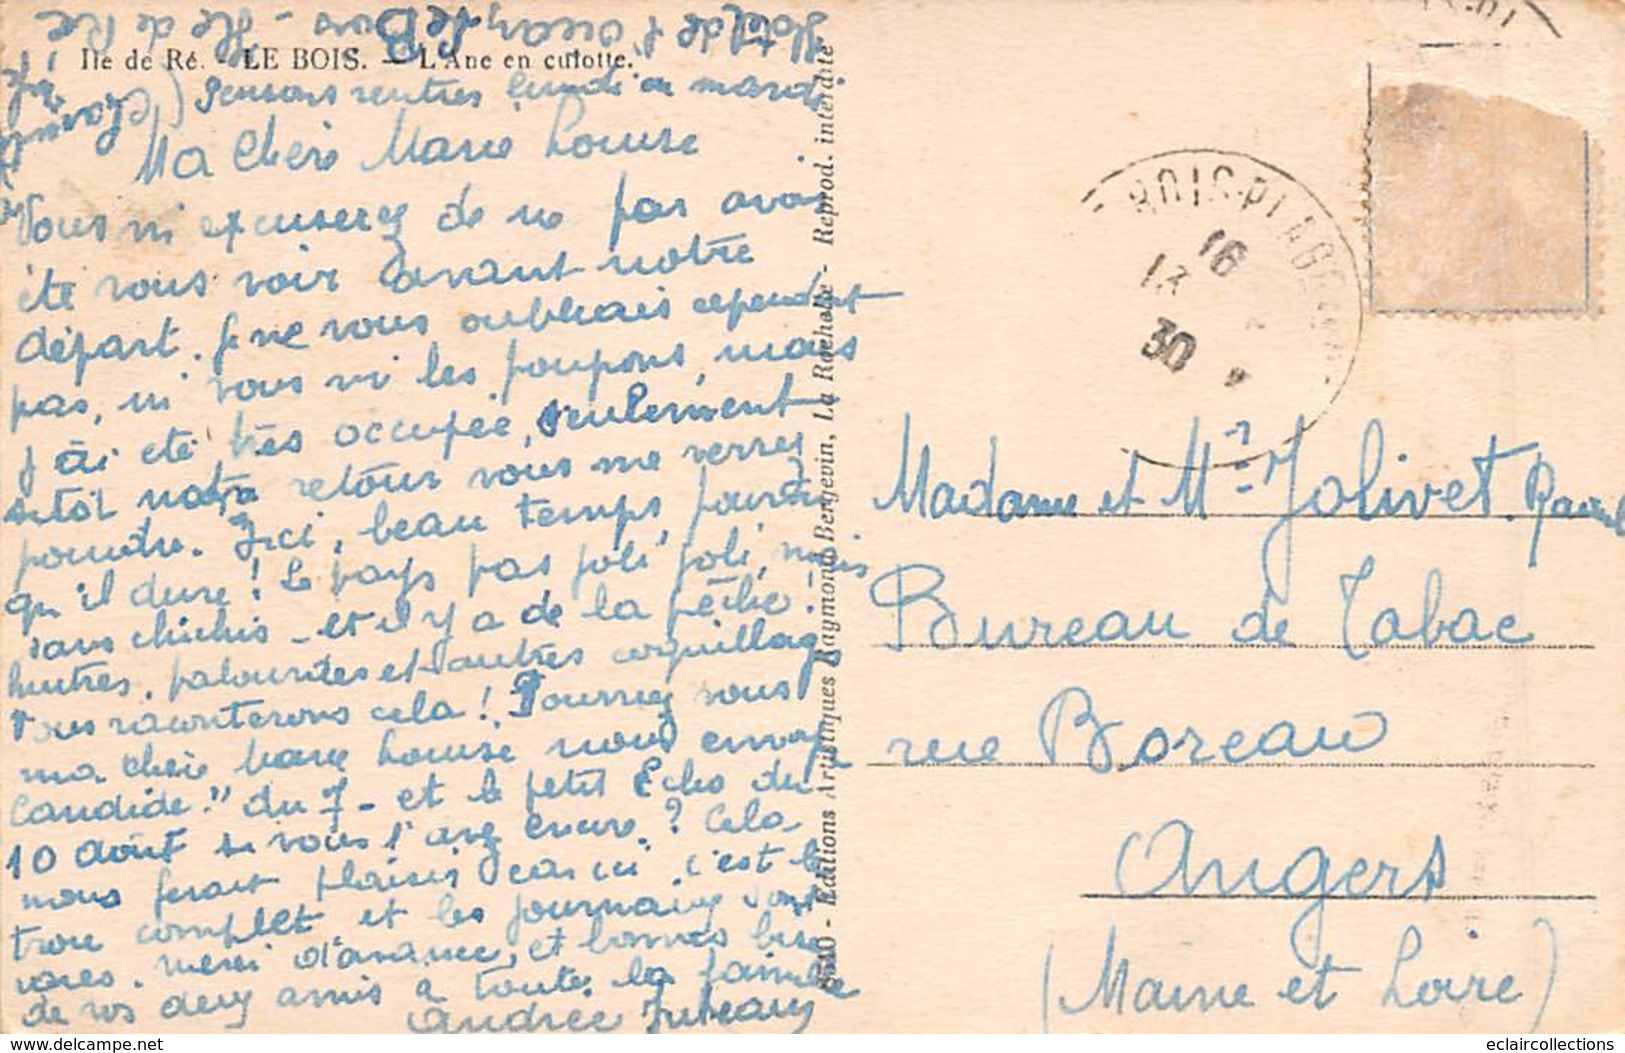 Hotel de l'océan, Le Bois - Ile de Ré
Ile de Ré. - LE BOIS. — L'Ane en culotte.
(Pensons rentrer lundi ou mardi
Ma Chère Marie Louise
Vous m'excuserez de ne pas avoir
été vous voir avant notre
départ. Je ne vous oubliais cependant
pas, ni vous ni les poupons, mais
j'ai été très occupée, seulement
sitôt notre retour vous me verrez
poindre. Ici, beau temps, pourvu
qu'il dure ! Le pays pas joli joli, mais
sans chichis - et il y a de la pêche !
huitres, palourdes et autres coquillages
vous raconterons cela ! Pourriez vous
ma chère Marie Louise nous envoyer
Candide" du 7 - et le petit Echo du
10 août si vous l'avez encore ? Cela
nous ferait plaisir car ici c'est le
trou complet et les journaux sont
rares. Merci d'avance, et bonnes bises
de vos deux amis à toute la famille
Andrée
8540 - Editions Artistiques Raymond Bergevin, La Rochelle - Reprod. interdite
BOIS-PLAGE
16
13
30
Madame et Mr Jolivet. Raoul
Bureau de Tabac
rue Boreau
Angers
(Maine et Loire)
www.delcampe.net
eclaircollections